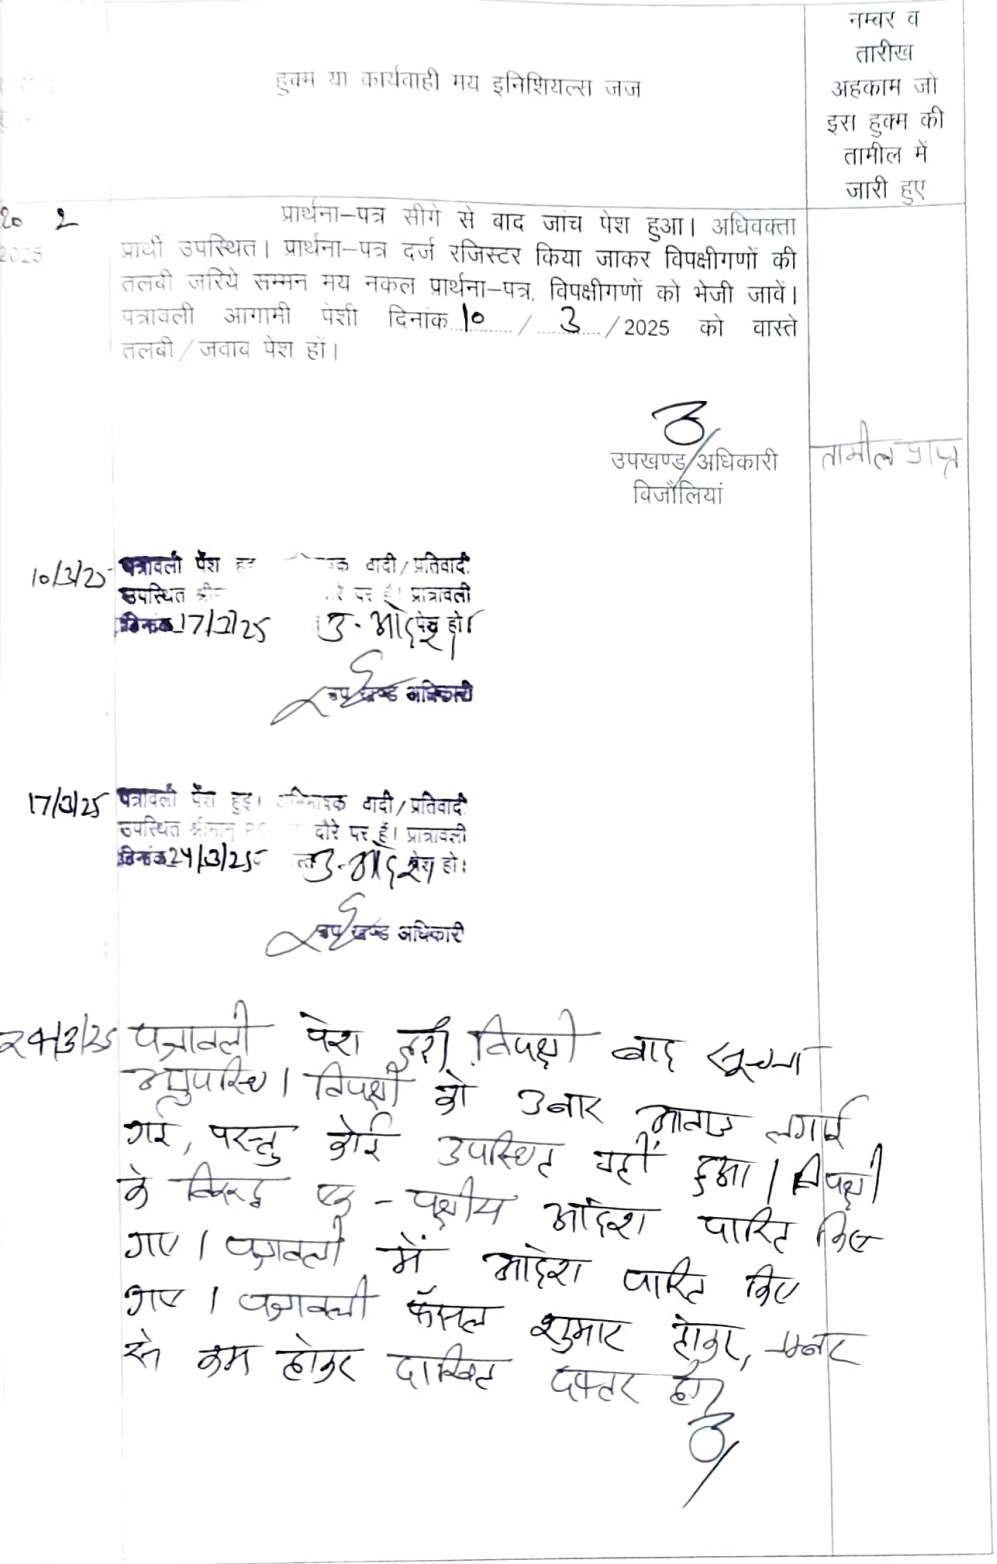 हुक्म या कार्यवाही मय इनिशियल्स जज
नम्बर व
तारीख
अहकाम जो
इस हुक्म की
तामील में
जारी हुए
20 2
2025
प्रार्थना-पत्र सीगे से बाद जांच पेश हुआ। अधिवक्ता
प्रार्थी उपस्थित। प्रार्थना-पत्र दर्ज रजिस्टर किया जाकर विपक्षीगणों की
तलबी जरिये सम्मन मय नकल प्रार्थना-पत्र, विपक्षीगणों को भेजी जावें।
पत्रावली आगामी पेशी दिनांक 10 / 3 /2025 को वास्ते
तलबी/जवाब पेश हों।
उपखण्ड अधिकारी
बिजौलियां
तामील प्राप्त
10/3/25 पत्रावली पेश हुई वादी/प्रतिवादी
उपस्थित पर हैं। प्रात्रावली
दिनांक 17/3/25 पेश हो।
उप खण्ड अधिकारी
17/3/25 पत्रावली पेश हुई। वादी/प्रतिवादी
उपस्थित श्रीमान दौरे पर हैं। प्रात्रावली
दिनांक 24/3/25 पेश हो।
उप खण्ड अधिकारी
24/3/25 पत्रावली पेश हुई। विपक्षी बाद सूचना
अनुपस्थित। विपक्षी को आवाज लगाई
गई, परन्तु कोई उपस्थित नहीं हुआ। विपक्षी
के विरुद्ध एक-पक्षीय आदेश पारित किए
गए। पत्रावली में आदेश पारित किए
गए। पत्रावली फैसल शुमार होकर, नम्बर
से कम होकर दाखिल दफ्तर हो।